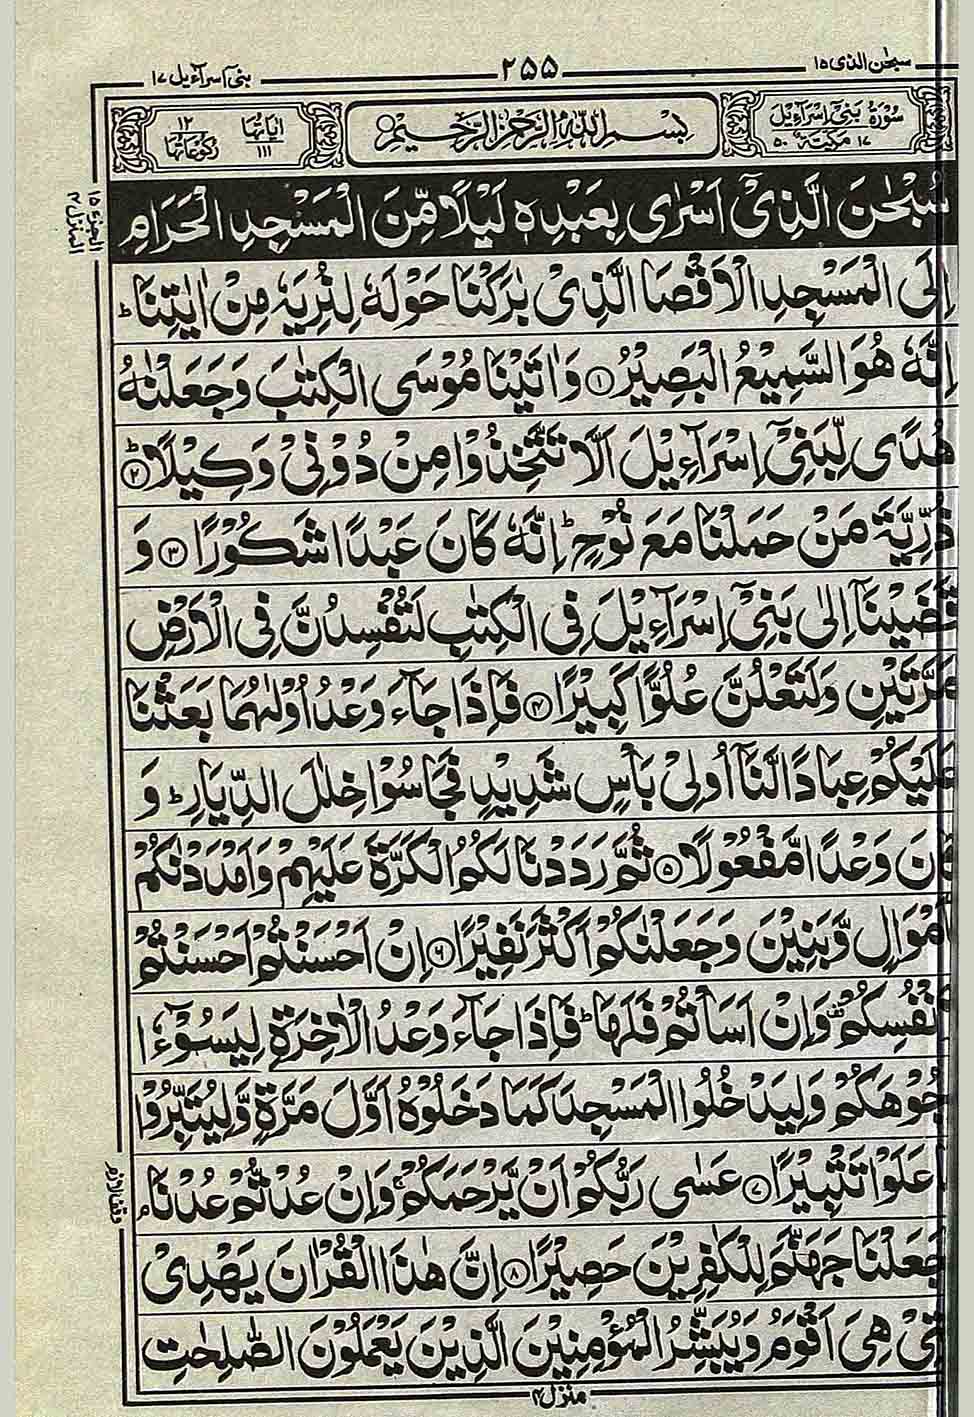 سبحٰن الذی ۱۵
۲۵۵
بنی اسرآءیل ۱۷
سُوْرَةُ بَنِیْۤ اِسْرَآءِیْلَ
۱۷ مَكِّیَّةٌ ۵۰
بِسْمِ اللّٰهِ الرَّحْمٰنِ الرَّحِیْمِ
اٰیَاتُهَا ۱۱۱
رُكُوْعَاتُهَا ۱۲
سُبْحٰنَ الَّذِیْۤ اَسْرٰی بِعَبْدِهٖ لَیْلًا مِّنَ الْمَسْجِدِ الْحَرَامِ
اِلَی الْمَسْجِدِ الْاَقْصَا الَّذِیْ بٰرَكْنَا حَوْلَهٗ لِنُرِیَهٗ مِنْ اٰیٰتِنَا ؕ
اِنَّهٗ هُوَ السَّمِیْعُ الْبَصِیْرُ ۱ وَ اٰتَیْنَا مُوْسَی الْكِتٰبَ وَ جَعَلْنٰهُ
هُدًی لِّبَنِیْۤ اِسْرَآءِیْلَ اَلَّا تَتَّخِذُوْا مِنْ دُوْنِیْ وَكِیْلًا ؕ ۲
ذُرِّیَّةَ مَنْ حَمَلْنَا مَعَ نُوْحٍ ؕ اِنَّهٗ كَانَ عَبْدًا شَكُوْرًا ۳ وَ
قَضَیْنَاۤ اِلٰی بَنِیْۤ اِسْرَآءِیْلَ فِی الْكِتٰبِ لَتُفْسِدُنَّ فِی الْاَرْضِ
مَرَّتَیْنِ وَ لَتَعْلُنَّ عُلُوًّا كَبِیْرًا ۴ فَاِذَا جَآءَ وَعْدُ اُوْلٰىهُمَا بَعَثْنَا
عَلَیْكُمْ عِبَادًا لَّنَاۤ اُولِیْ بَاْسٍ شَدِیْدٍ فَجَاسُوْا خِلٰلَ الدِّیَارِ ؕ وَ
كَانَ وَعْدًا مَّفْعُوْلًا ۵ ثُمَّ رَدَدْنَا لَكُمُ الْكَرَّةَ عَلَیْهِمْ وَ اَمْدَدْنٰكُمْ
بِاَمْوَالٍ وَّ بَنِیْنَ وَ جَعَلْنٰكُمْ اَكْثَرَ نَفِیْرًا ۶ اِنْ اَحْسَنْتُمْ اَحْسَنْتُمْ
لِاَنْفُسِكُمْ وَ اِنْ اَسَاْتُمْ فَلَهَا ؕ فَاِذَا جَآءَ وَعْدُ الْاٰخِرَةِ لِیَسُوْٓءٗا
وُجُوْهَكُمْ وَ لِیَدْخُلُوا الْمَسْجِدَ كَمَا دَخَلُوْهُ اَوَّلَ مَرَّةٍ وَّ لِیُتَبِّرُوْا
مَا عَلَوْا تَتْبِیْرًا ۷ عَسٰی رَبُّكُمْ اَنْ یَّرْحَمَكُمْ ۚ وَ اِنْ عُدْتُّمْ عُدْنَا ۘ
وَ جَعَلْنَا جَهَنَّمَ لِلْكٰفِرِیْنَ حَصِیْرًا ۸ اِنَّ هٰذَا الْقُرْاٰنَ یَهْدِیْ
لِلَّتِیْ هِیَ اَقْوَمُ وَ یُبَشِّرُ الْمُؤْمِنِیْنَ الَّذِیْنَ یَعْمَلُوْنَ الصّٰلِحٰتِ
منزل ۴
الجزء ۱۵
المنزل ۴
وقف لازم